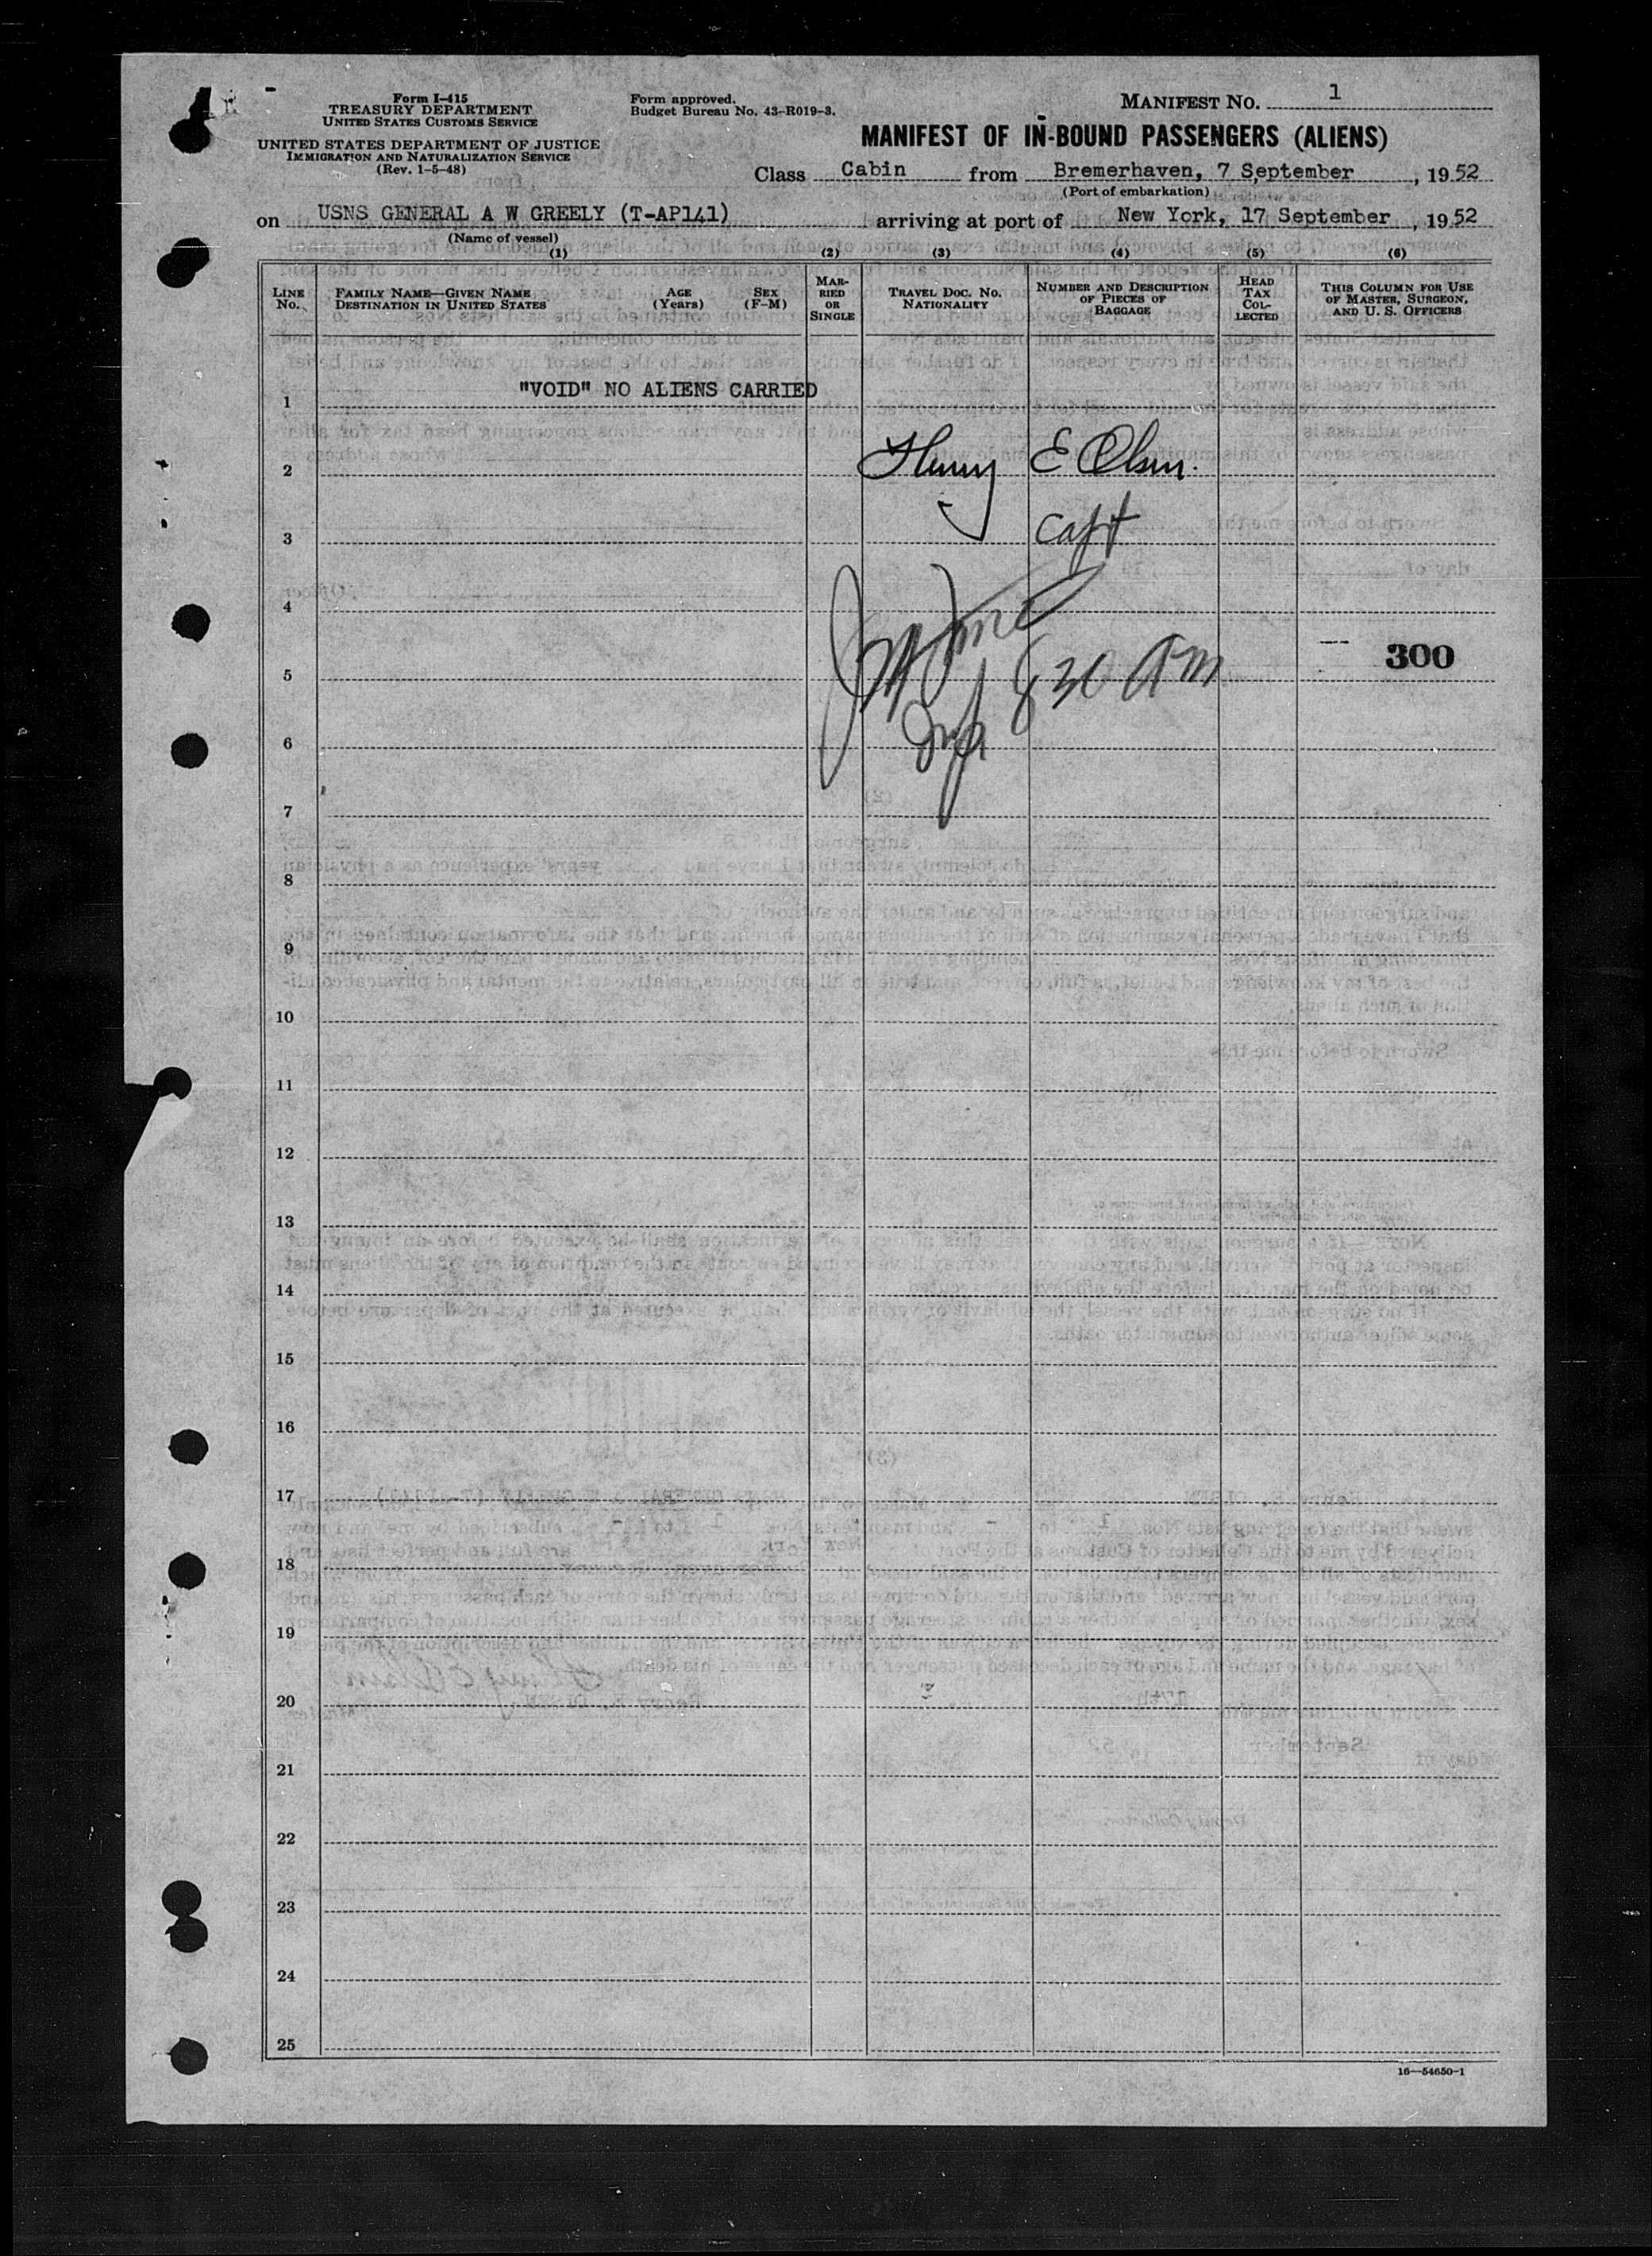 Form I-415
TREASURY DEPARTMENT
UNITED STATES CUSTOMS SERVICE
UNITED STATES DEPARTMENT OF JUSTICE
IMMIGRATION AND NATURALIZATION SERVICE
(Rev. 1-5-48)
Form approved.
Budget Bureau No. 43-R019-3.
MANIFEST NO. 1
MANIFEST OF IN-BOUND PASSENGERS (ALIENS)
Class Cabin from Bremerhaven, 7 September, 1952
(Port of embarkation)
on USNS GENERAL A W GREELY (T-AP141) arriving at port of New York, 17 September, 1952
(Name of vessel)
(1) (2) (3) (4) (5) (6)
LINE NO.
FAMILY NAME—GIVEN NAME
DESTINATION IN UNITED STATES
AGE
(Years)
SEX
(F-M)
MAR-
RIED
OR
SINGLE
TRAVEL DOC. NO.
NATIONALITY
NUMBER AND DESCRIPTION
OF PIECES OF
BAGGAGE
HEAD
TAX
COL-
LECTED
THIS COLUMN FOR USE
OF MASTER, SURGEON,
AND U. S. OFFICERS
"VOID" NO ALIENS CARRIED
1
2 Henry E Olsen.
3 Capt
4
300
5 830 AM
6
7
8
9
10
11
12
13
14
15
16
17
18
19
20
21
22
23
24
25
16—54650-1